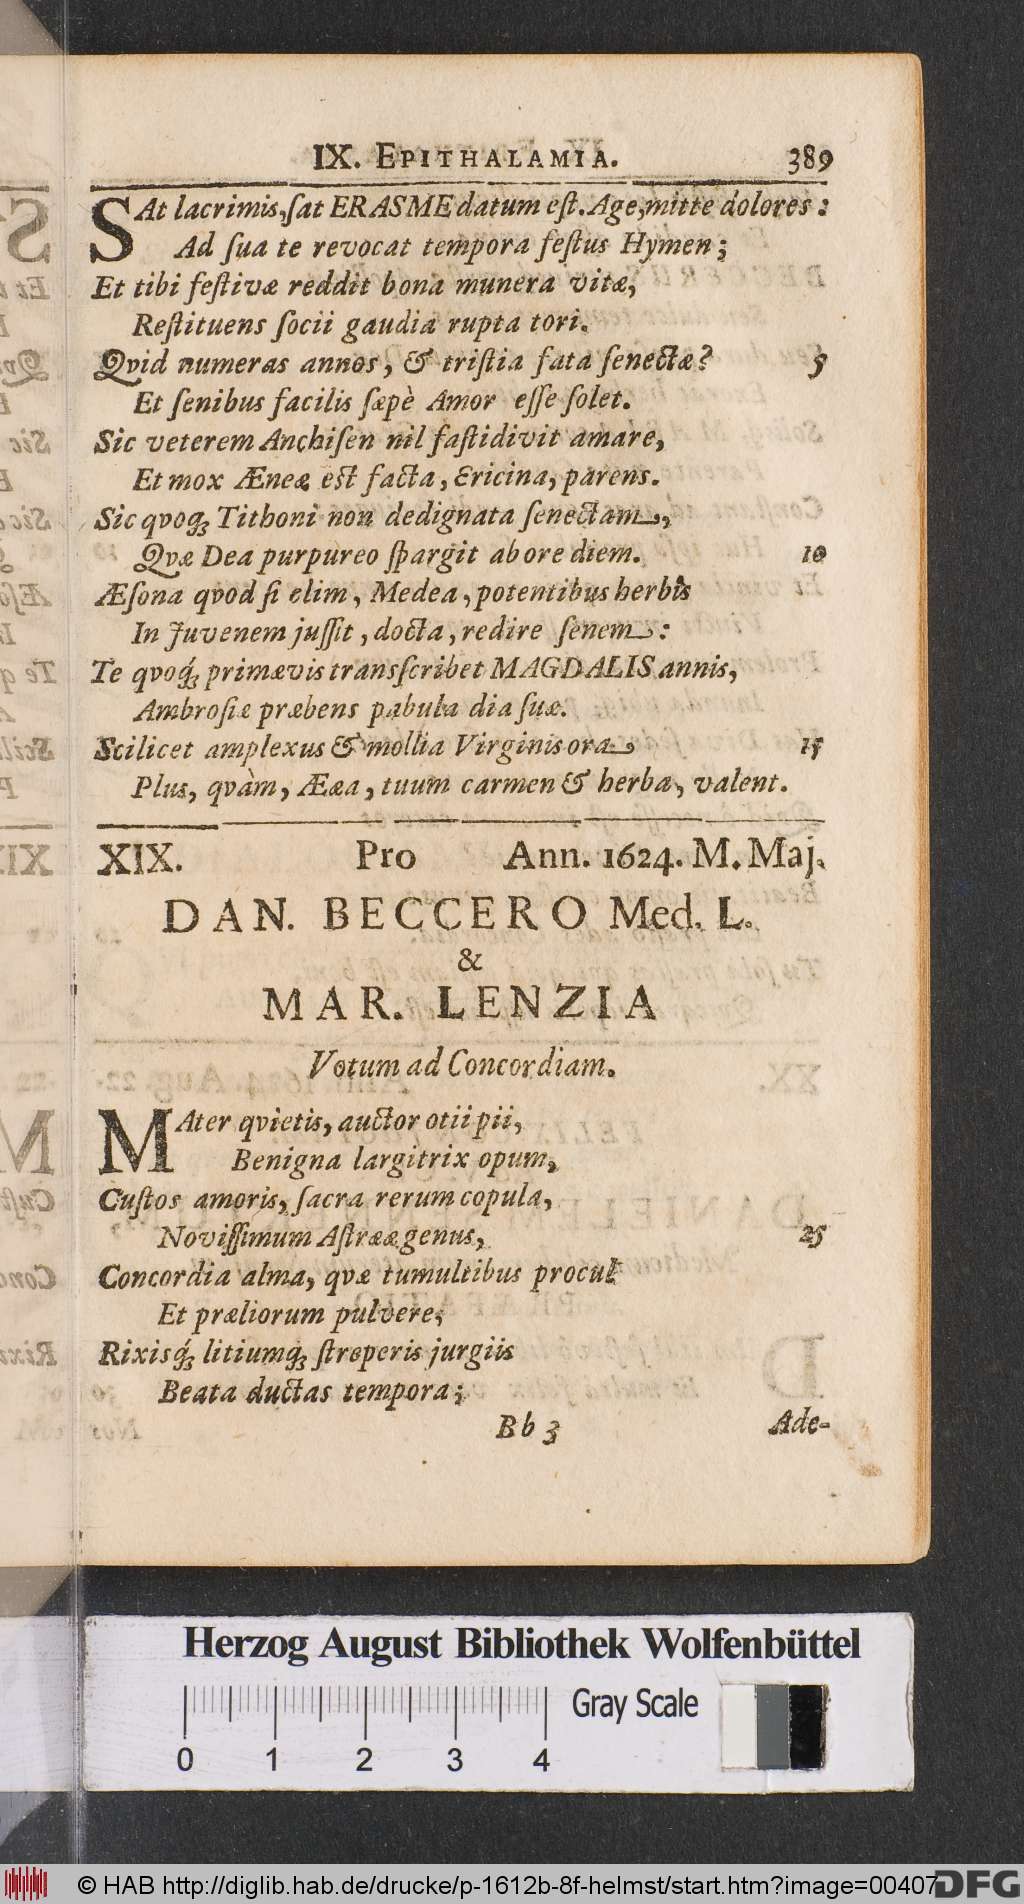 IX. EPITHALAMIA. 389
SAt lacrimis, ſat ERASME datum eſt. Age, mitte dolores:
Ad ſua te revocat tempora feſtus Hymen;
Et tibi feſtivæ reddit bona munera vitæ,
Reſtituens ſocii gaudia rupta tori.
Qvid numeras annos, & triſtia fata ſenectæ? 5
Et ſenibus facilis ſæpè Amor eſſe ſolet.
Sic veterem Anchiſen nil faſtidivit amare,
Et mox Æneæ eſt facta, Ericina, parens.
Sic qvoqꝫ Tithoni non dedignata ſenectam,
Qvæ Dea purpureo ſpargit ab ore diem. 10
Æſona qvod ſi olim, Medea, potentibus herbis
In Juvenem juſſit, docta, redire ſenem:
Te qvoq́ꝫ primævis transſcribet MAGDALIS annis,
Ambroſiæ præbens pabula dia ſuæ.
Scilicet amplexus & mollia Virginis ora 15
Plus, qvàm, Ææa, tuum carmen & herba, valent.
XIX. Pro Ann. 1624. M. Maj.
DAN. BECCERO Med. L.
&
MAR. LENZIA
Votum ad Concordiam.
MAter qvietis, auctor otii pii,
Benigna largitrix opum,
Cuſtos amoris, ſacra rerum copula,
Noviſſimum Aſtrææ genus, 25
Concordia alma, qvæ tumultibus procul
Et præliorum pulvere,
Rixisq́ꝫ litiumq́ꝫ ſtreperis jurgiis
Beata ductas tempora;
Bb 3 Ade-
Herzog August Bibliothek Wolfenbüttel
Gray Scale
0 1 2 3 4
© HAB http://diglib.hab.de/drucke/p-1612b-8f-helmst/start.htm?image=00407
DFG